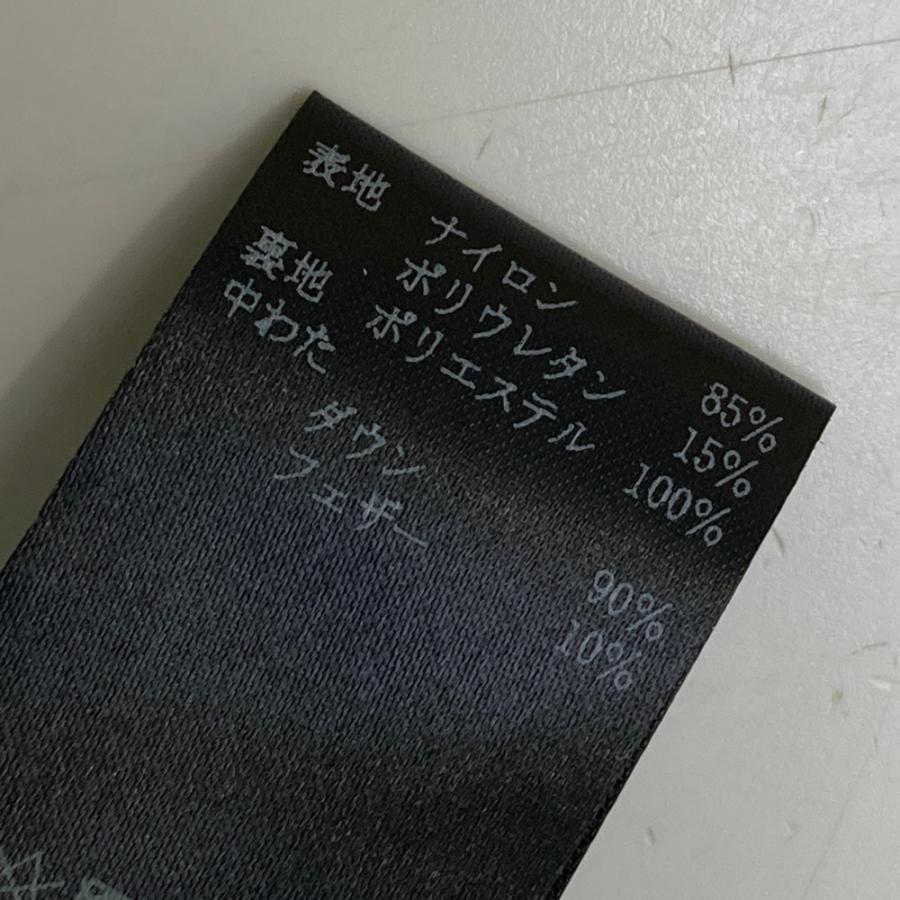 表地 ナイロン 85%
ポリウレタン 15%
裏地 ポリエステル 100%
中わた
ダウン 90%
フェザー 10%